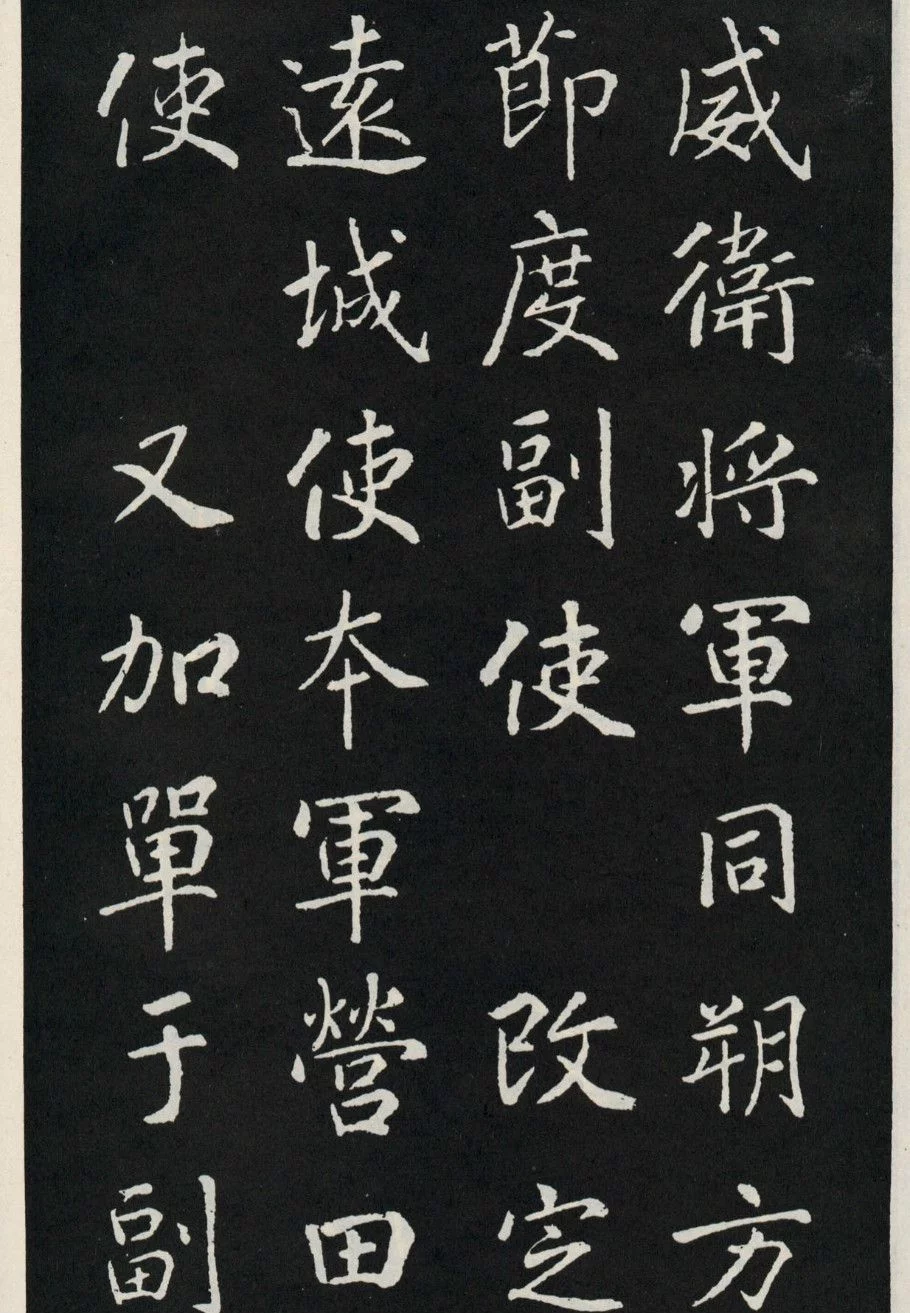 威衛將軍同朔方
節度副使　改定
遠城使本軍營田
使　又加單于副